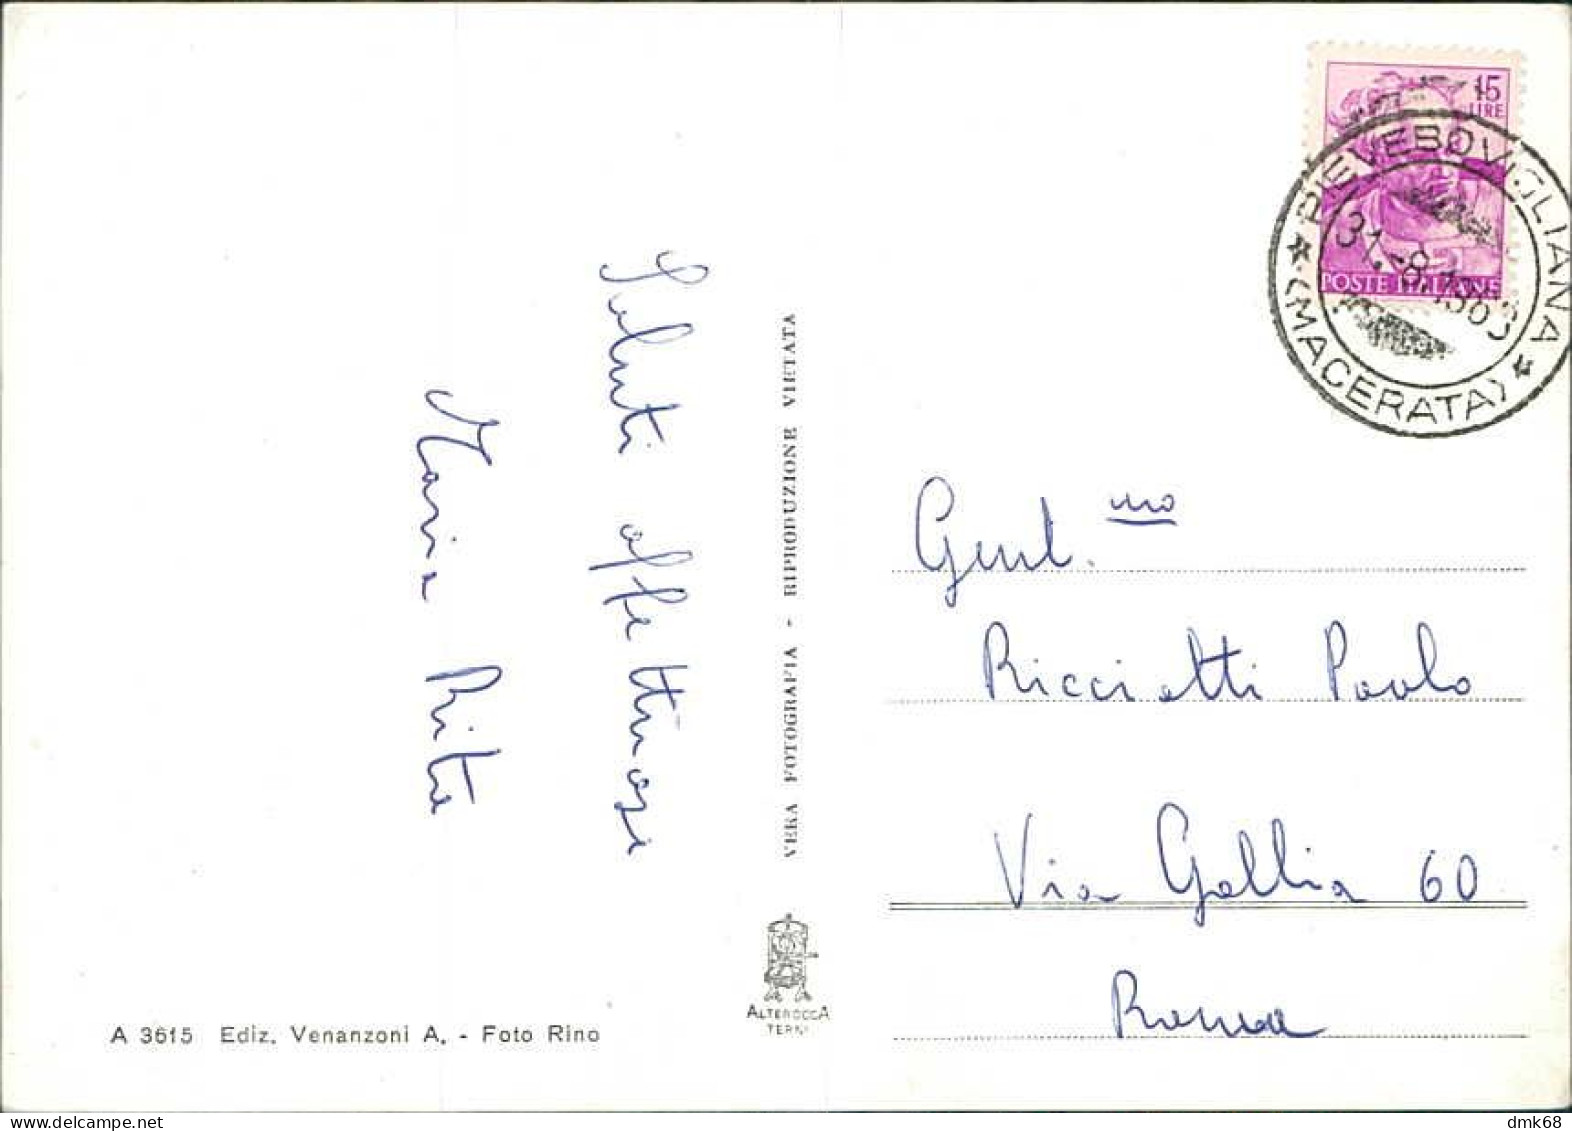 15
LIRE
POSTE ITALIANE
PIEVEBOVIGLIANA
(MACERATA)
31.-8.196
Saluti affettuosi
Maria Rita
VERA FOTOGRAFIA - RIPRODUZIONE VIETATA
Gent.mo
Riccietti Paolo
Via Gallia 60
Roma
ALTEROCCA
TERNI
A 3615 Ediz. Venanzoni A. - Foto Rino
dmk68